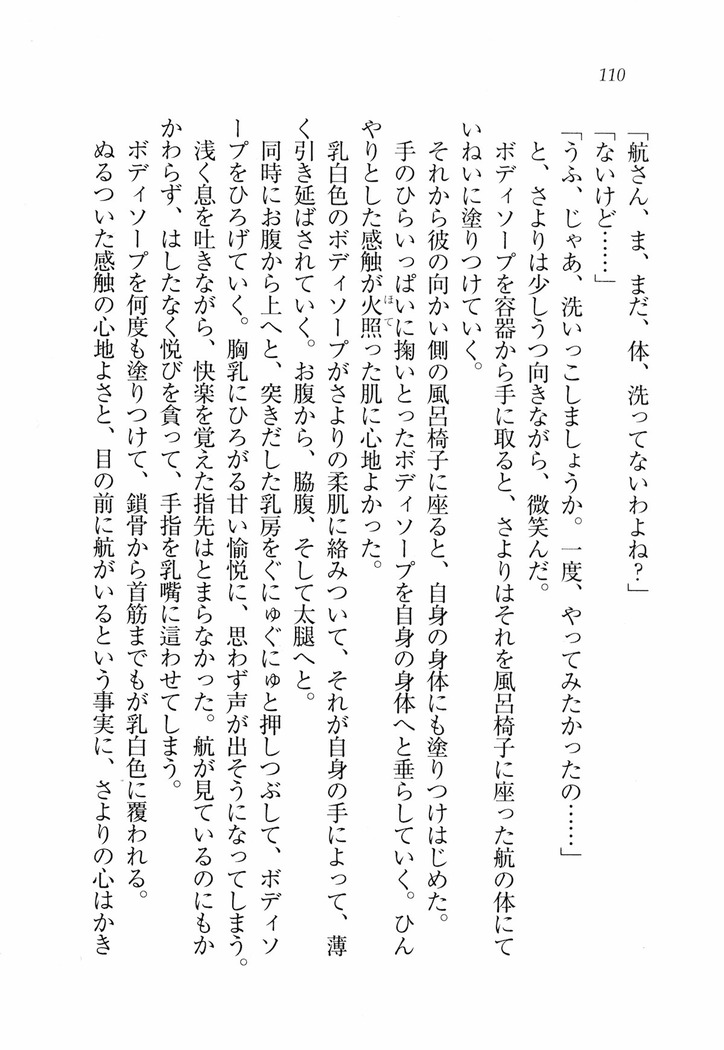 110
「航さん、ま、まだ、体、洗ってないわよね？」
「ないけど……」
「うふ、じゃあ、洗いっこしましょうか。一度、やってみたかったの……」
と、さよりは少しうつ向きながら、微笑んだ。
ボディソープを容器から手に取ると、さよりはそれを風呂椅子に座った航の体にて
いねいに塗りつけていく。
それから彼の向かい側の風呂椅子に座ると、自身の身体にも塗りつけはじめた。
手のひらいっぱいに掬いとったボディソープを自身の身体へと垂らしていく。ひん
やりとした感触が火照った肌に心地よかった。
ほて
乳白色のボディソープがさよりの柔肌に絡みついて、それが自身の手によって、薄
く引き延ばされていく。お腹から、脇腹、そして太腿へと。
同時にお腹から上へと、突きだした乳房をぐにゅぐにゅと押しつぶして、ボディソ
ープをひろげていく。胸乳にひろがる甘い愉悦に、思わず声が出そうになってしまう。
浅く息を吐きながら、快楽を覚えた指先はとまらなかった。航が見ているのにもか
かわらず、はしたなく悦びを貪って、手指を乳嘴に這わせてしまう。
ボディソープを何度も塗りつけて、鎖骨から首筋までもが乳白色に覆われる。
ぬるついた感触の心地よさと、目の前に航がいるという事実に、さよりの心はかき